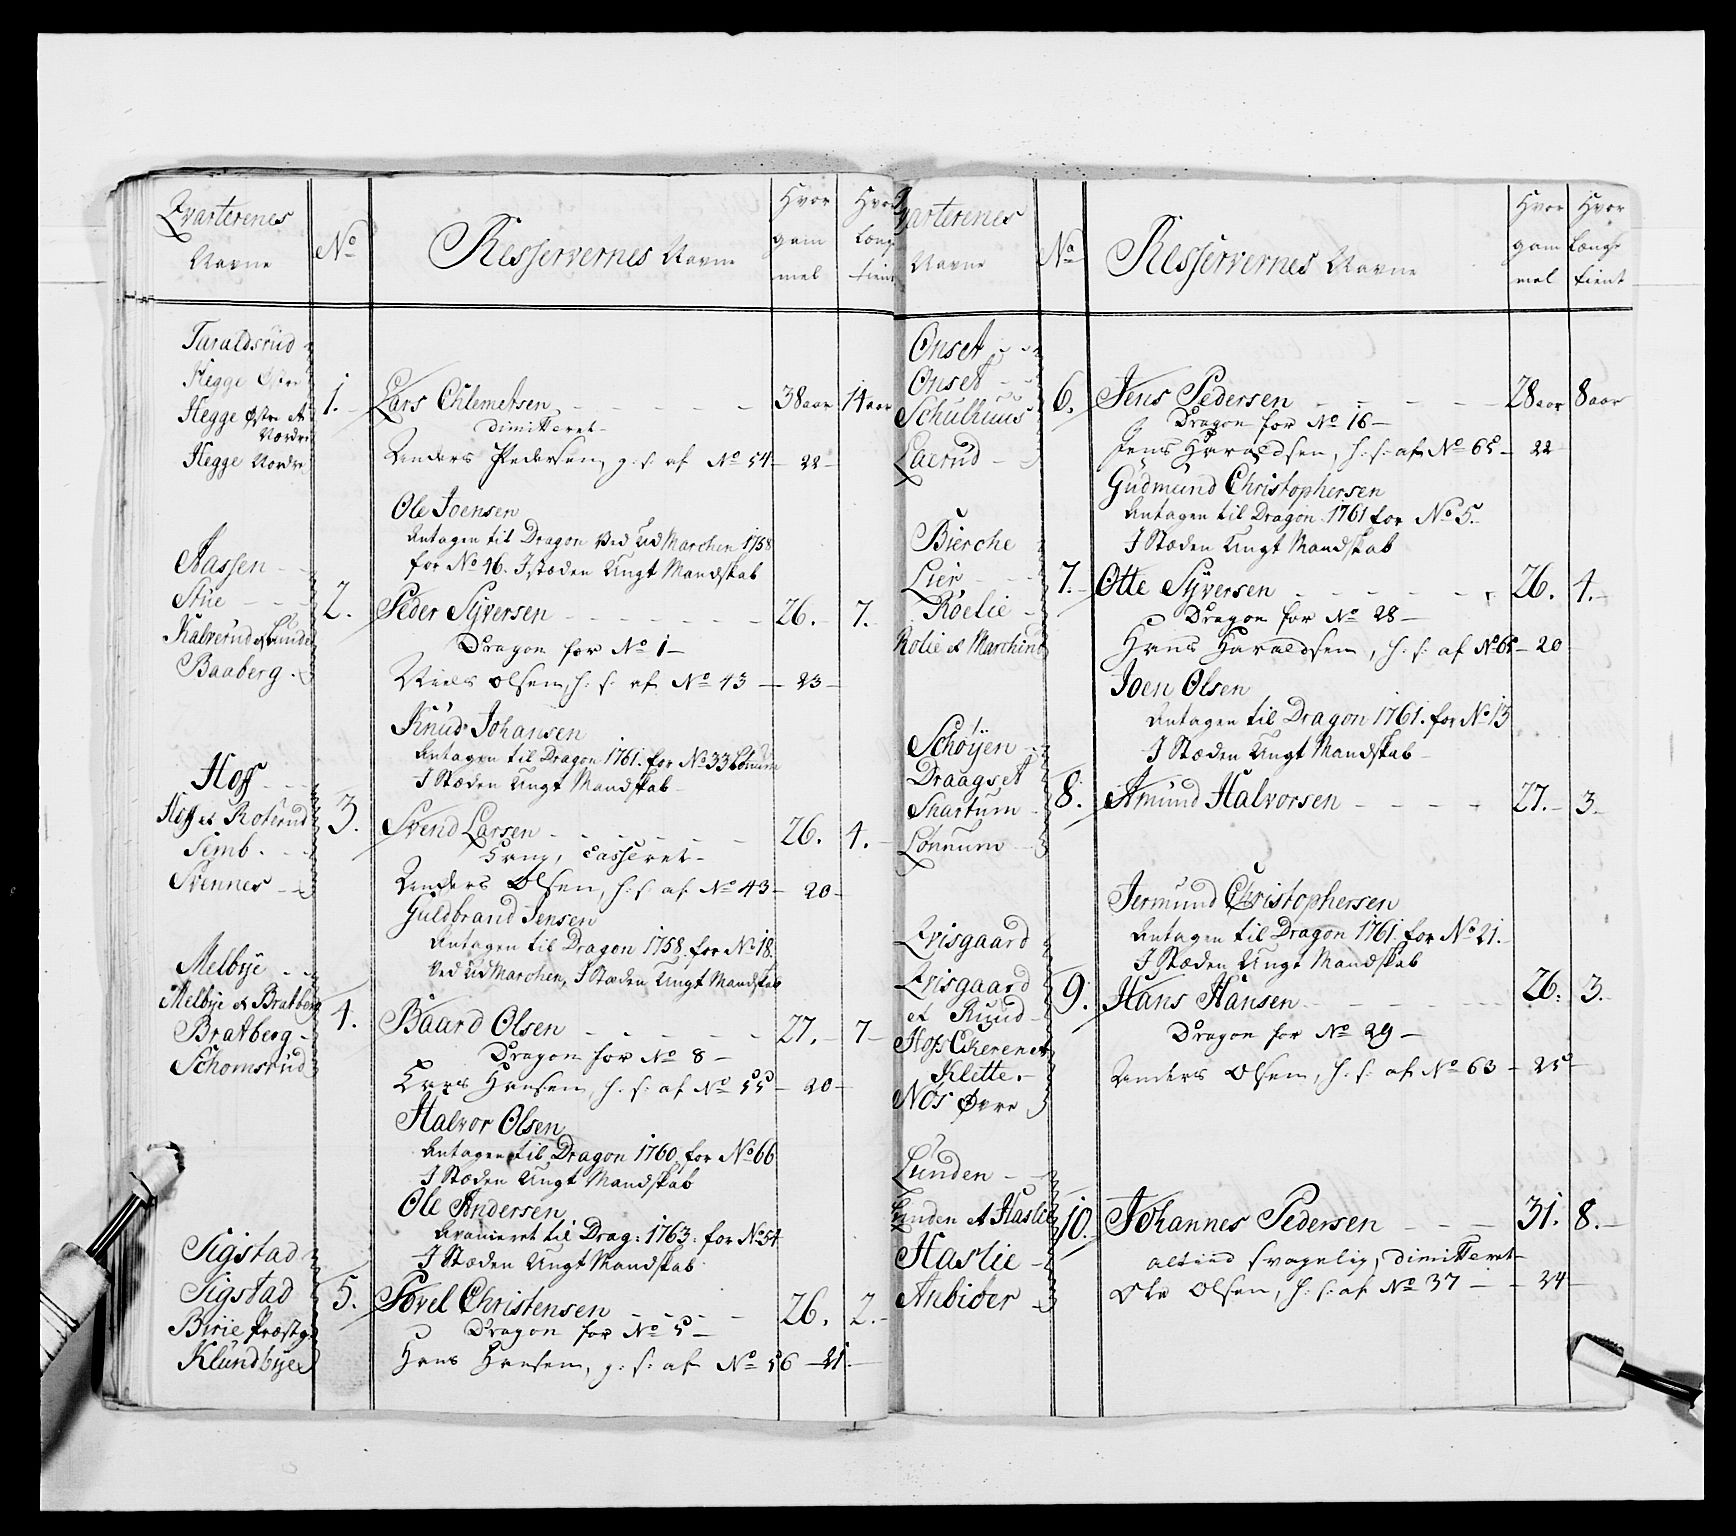 Qvarterenes
Navne
No
Resservernes Navne
Hvor
gam
mel
Hvor
længe
tient
Taraldsrud
Hegge Østre
Hegge Østre et
Nordre
Hegge Nordre
1.
Lars Chlemetsen 38 aar 14 aar
Dimitteret
Anders Pedersen, g: s: af No 54 22
Ole Joensen
Antagen til Dragon Ved UdMarchen 1758
for No 46. I stæden Ungt Mandskab
Aassen
Stue
Kalverud et Lunde
Baaberg
2.
Peder Syversen 26. 7.
Dragon for No 1
Niels Olsen, h: s: af No 43 23
Knud Johansen
Antagen til Dragon 1761. for No 33 Lønum
I Stæden Ungt Mandskab
Hoff
Hoff et Roterud
Semb
Svennes
3.
Svend Larsen 26. 4.
Casseret
Anders Olsen, h: s: af No 43 20
Guldbrand Jensen
Antagen til Dragon 1758. for No 18.
Ved UdMarchen, I Stæden Ungt Mandskab
Melbye
Melbye et Bratberg
Bratberg
Schomsrud
4.
Baard Olsen 27. 7
Dragon for No 8
Lars Hansen, h: s: af No 55 20
Halvor Olsen
Antagen til Dragon 1760 for No 66
I Stæden Ungt Mandskab
Ole Andersen
Avancieret til Drag: 1763: for No 54
I Stæden Ungt Mandskab
Sigstad
Sigstad
Birie Præstg
Klundbye
5.
Povel Christensen 26. 2.
Dragon for No 5
Hans Hansen, g: s: af No 56 21
Qvarterenes
Navne
No
Resservernes Navne
Hvor
gam
mel
Hvor
længe
tient
Onset
Onset
Schulhuus
Laerud
6.
Jens Pedersen 28 aar 8 aar
Dragon for No 16
Jens Haraldsen, h: s: af No 65 22
Gudmund Christophersen
Antagen til Dragon 1761 for No 5.
I Stæden Ungt Mandskab
Bierche
Lier
Røelie
Rolie et Marchind
7.
Otte Syversen 26. 4.
Dragon for No 28
Hans Haraldsen, h: s: af No 65 20
Joen Olsen
Antagen til Dragon 1761. for No 13
I Stæden Ungt Mandskab
Schøyen
Draagset
Shartum
Lønnum
8.
Amund Halvorsen 27. 3.
Jermund Christophersen
Antagen til Dragon 1761. for No 21.
I Stæden Ungt Mandskab
Qvisgaard
Qvisgaard
et Ruud
Hoffs Ekeren et
Klette
Nøs Øvre
9.
Hans Hansen 26. 3.
Dragon for No 29
Anders Olsen, h: s: af No 63 25
Lunden
Lunden et Haslie
Haslie
Anbiøer
10.
Johannes Pedersen 31. 8.
altiid svagelig, Dimitteret
Ole Olsen, h: s: af No 37 24